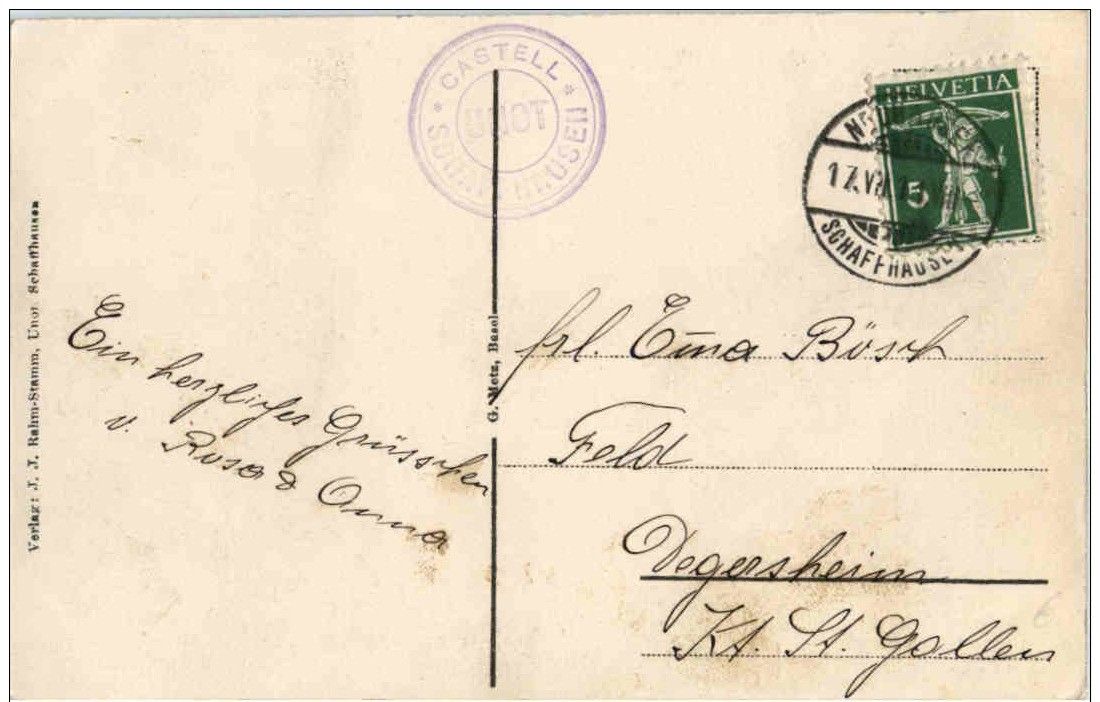 Verlag: J. J. Rahm-Stamm, Unot Schaffhausen
Ein herzliches Grüsschen
v. Rosa & Anna
CASTELL
SCHAFFHAUSEN
G. Metz, Basel
HELVETIA
5
17. VII.
SCHAFFHAUSEN
frl. Em̅a Bösch
Feld
Degersheim
Kt. St. Gallen